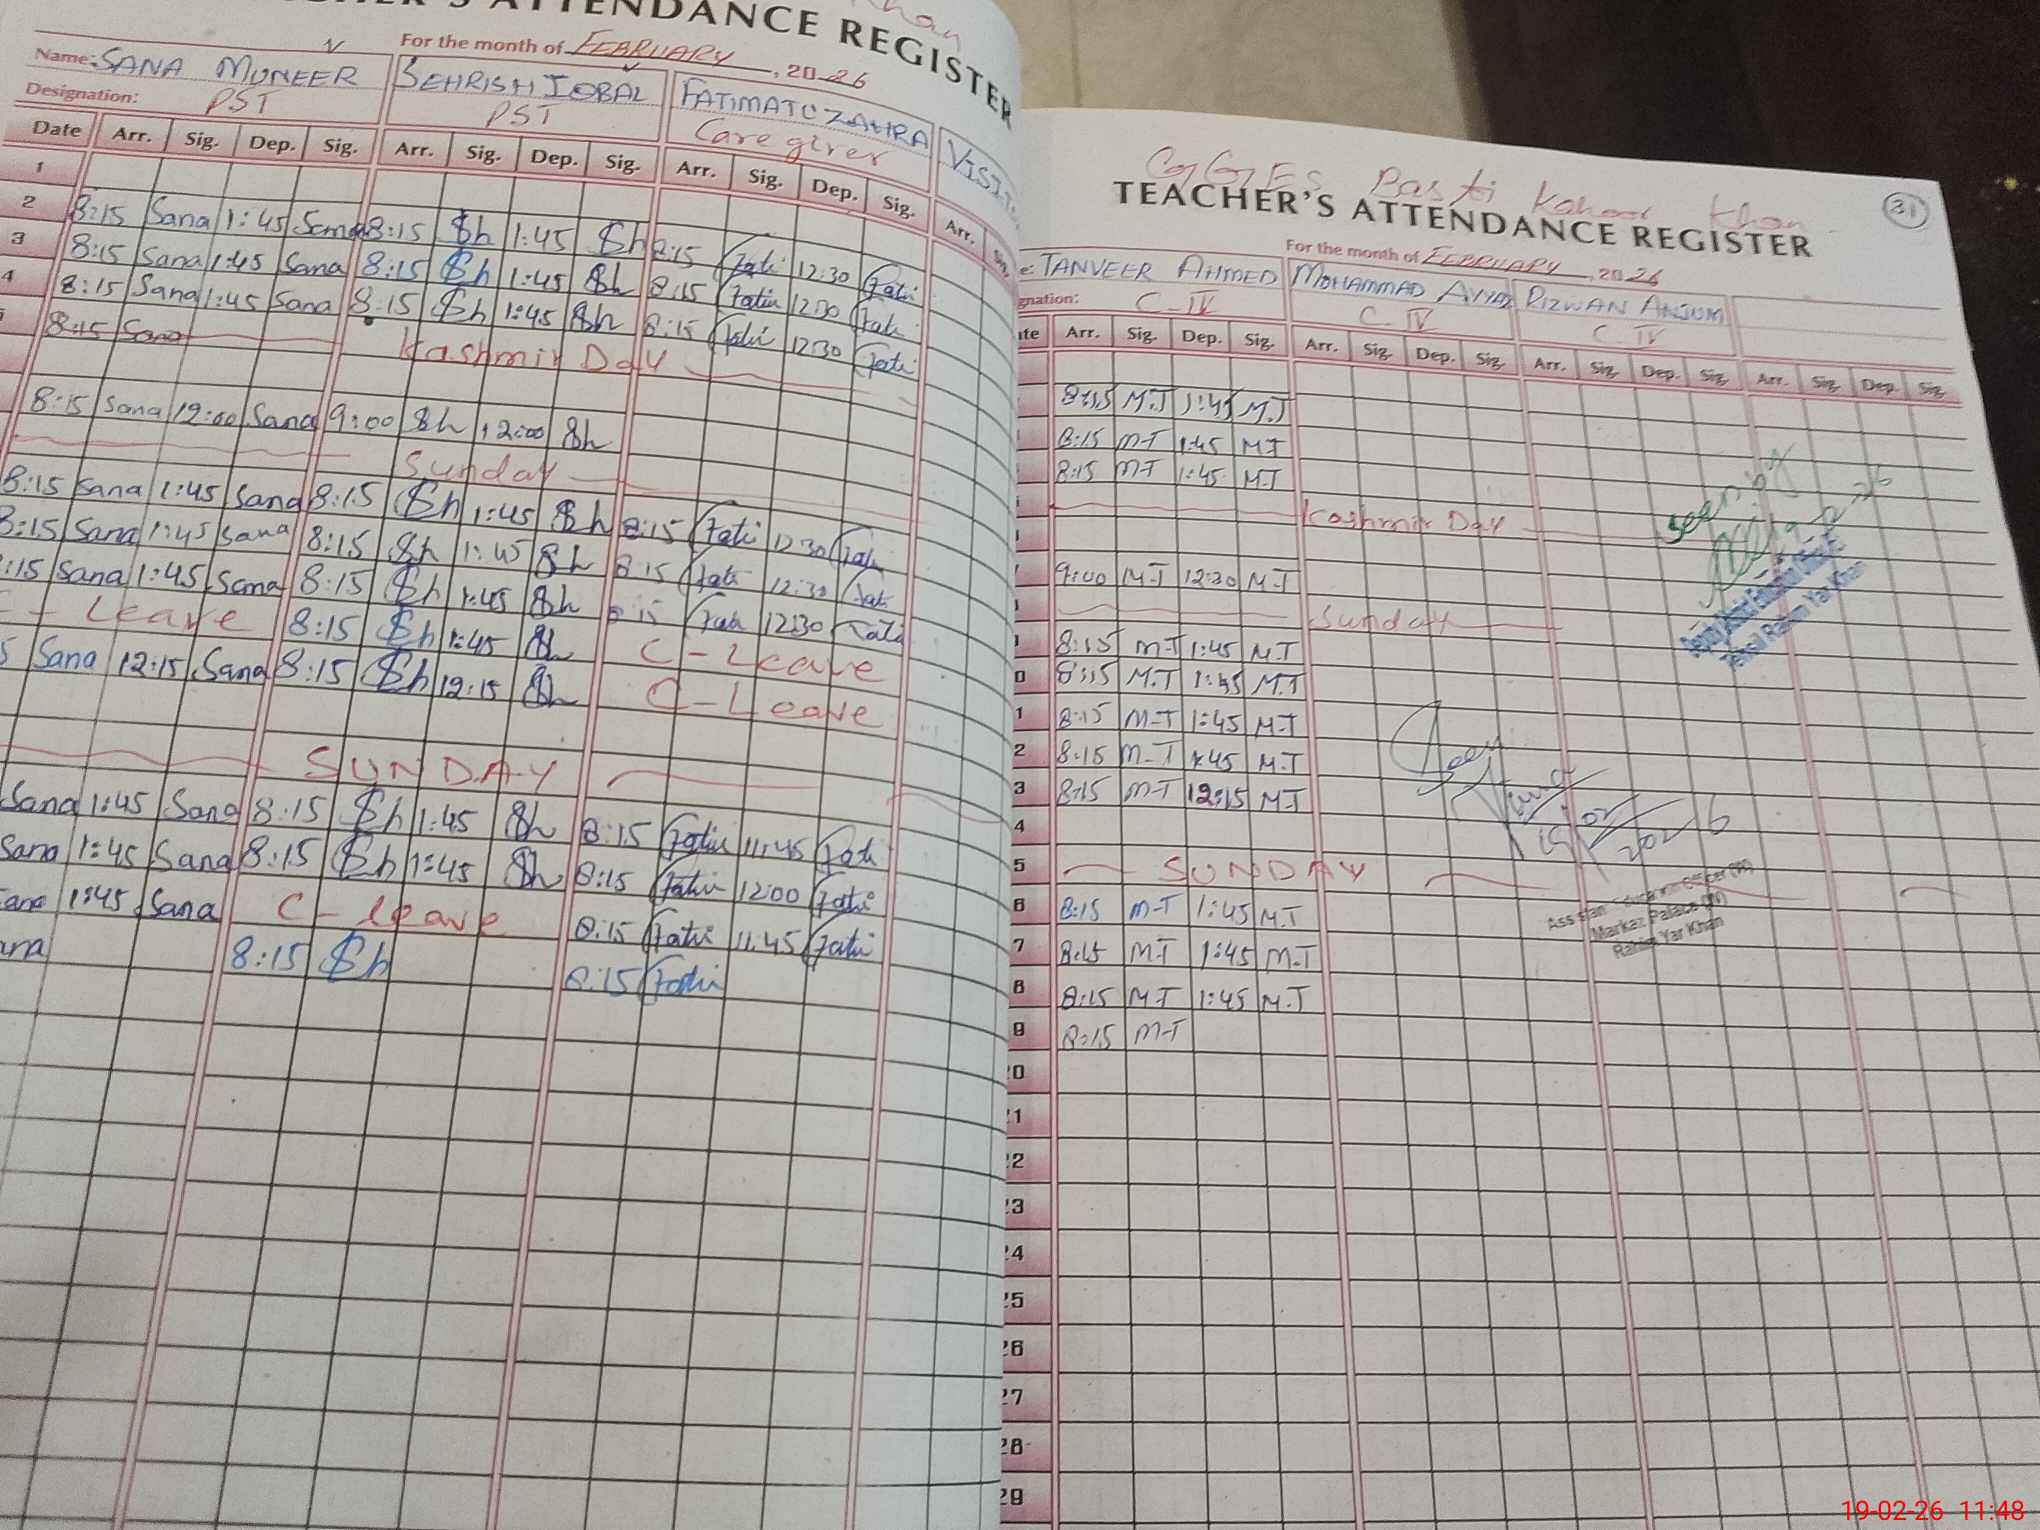 TEACHER'S ATTENDANCE REGISTER
For the month of FEBRUARY, 2026
Name: SANA MUNEER SEHRISH IQBAL FATIMATUZ ZAHRA
Designation: PST PST Care giver
Date Arr. Sig. Dep. Sig. Arr. Sig. Dep. Sig. Arr. Sig. Dep. Sig. Arr.
1
2 8:15 Sana 1:45 Sana 8:15 Sh 1:45 Sh 8:15 Fati 12:30 Fati
3 8:15 Sana 1:45 Sana 8:15 Sh 1:45 Sh 8:15 Fati 12:30 Fati
4 8:15 Sana 1:45 Sana 8:15 Sh 1:45 Sh 8:15 Fati 12:30 Fati
8:15 Sana Kashmir Day
8:15 Sana 12:00 Sana 9:00 Sh 12:00 Sh
Sunday
8:15 Sana 1:45 Sana 8:15 Sh 1:45 Sh 8:15 Fati 12:30 Fati
8:15 Sana 1:45 Sana 8:15 Sh 1:45 Sh 8:15 Fati 12:30 Fati
:15 Sana 1:45 Sana 8:15 Sh 1:45 Sh 8:15 Fati 12:30 Fati
C - Leave 8:15 Sh 1:45 Sh C - Leave
5 Sana 12:15 Sana 8:15 Sh 12:15 Sh C - Leave
SUNDAY
Sana 1:45 Sana 8:15 Sh 1:45 Sh 8:15 Fati 11:45 Fati
Sana 1:45 Sana 8:15 Sh 1:45 Sh 8:15 Fati 12:00 Fati
Sana 1:45 Sana C - Leave 8:15 Fati 11:45 Fati
ana 8:15 Sh 8:15 Fati
GGES Basti Kahoor Khan
31
TEACHER'S ATTENDANCE REGISTER
For the month of FEBRUARY, 2026
e: TANVEER AHMED MOHAMMAD AYYAZ RIZWAN ANJUM
gnation: C-IV C-IV C-IV
te Arr. Sig. Dep. Sig. Arr. Sig. Dep. Sig. Arr. Sig. Dep. Sig. Arr. Sig. Dep. Sig.
8:15 M.T 1:45 M.T
8:15 M-T 1:45 M.T
8:15 M-T 1:45 M.T
Kashmir Day
9:00 M.T 12:30 M-T
Sunday
8:15 M-T 1:45 M.T
0 8:15 M.T 1:45 M.T
1 8:15 M-T 1:45 M.T
2 8:15 M-T 1:45 M.T
3 8:15 M-T 12:15 M-T
4
5 SUNDAY
6 8:15 M-T 1:45 M.T
7 8:15 M-T 1:45 M-T
8 8:15 M.T 1:45 M.T
9 8:15 M-T
20
21
22
23
24
25
26
27
28
29
Tehsil Rahim Yar Khan
2026
Assistant Education Officer (W)
Markaz Palace (W)
Rahim Yar Khan
19-02-26 11:48